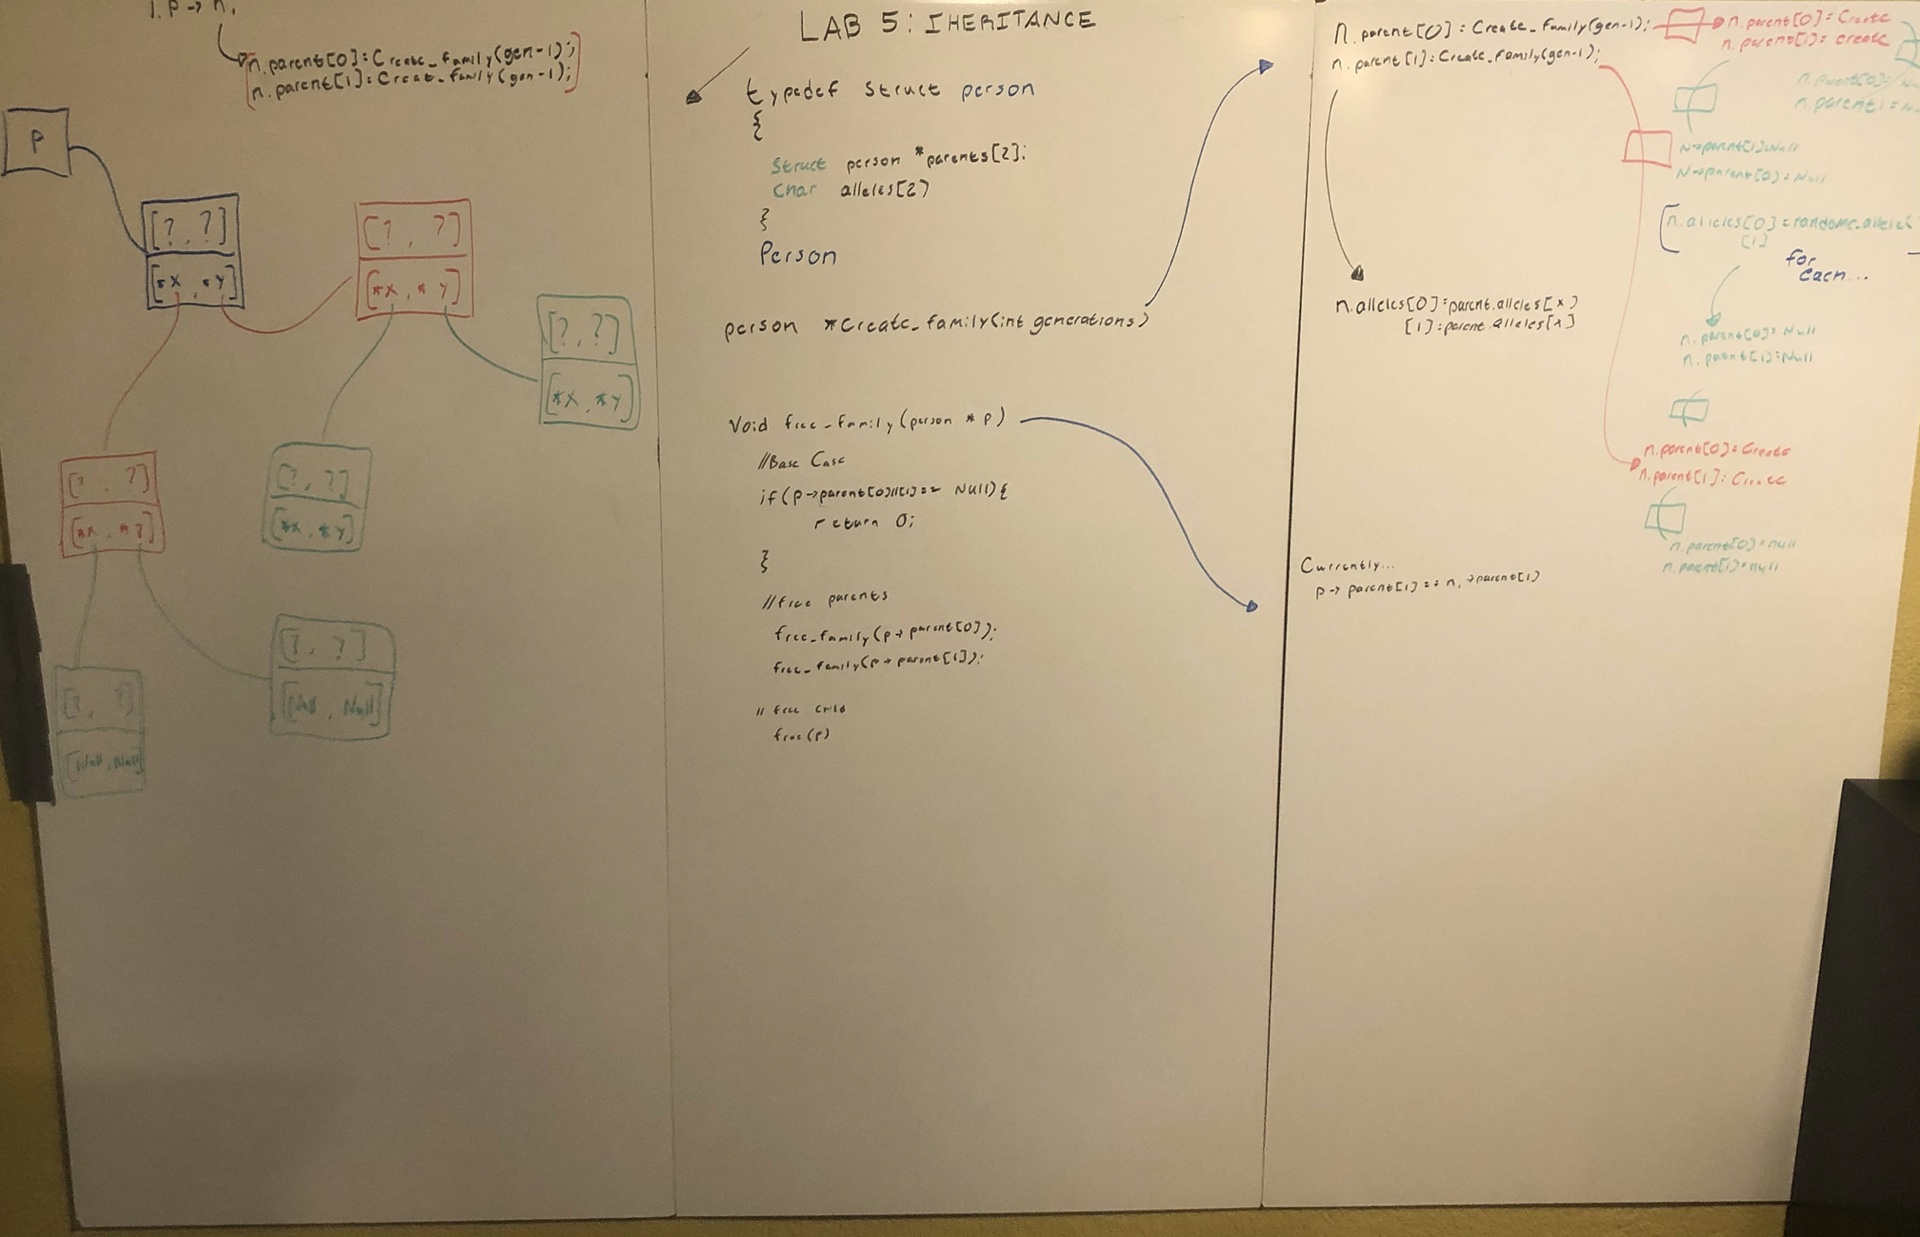 1. P → n,
n.parent[0]=Create_family(gen-1);
n.parent[1]=Create_family(gen-1);
P
[?, ?]
[*x, *y]
[?, ?]
[*x, *y]
[?, ?]
[*x, *y]
[?, ?]
[*x, *y]
[?, ?]
[*x, *y]
[?, ?]
[Null, Null]
[?, ?]
[Null, Null]
LAB 5: INHERITANCE
typedef struct person
{
struct person *parents[2];
char alleles[2]
}
Person
person *Create_family(int generations)
Void free_family(person * p)
//Base Case
if(p→parent[0]||[1]== Null){
return 0;
}
//free parents
free_family(p→parent[0]);
free_family(p→parent[1]);
// free child
free(p)
n.parent[0] = Create_family(gen-1);
n.parent[1] = Create_family(gen-1);
n.alleles[0]=parent.alleles[x]
[1]=parent.alleles[x]
Currently...
p→ parent[1] == n, →parent[1]
n.parent[0]=Create
n.parent[1]=create
n.parent[0]=
n.parent1=N
N→parent[1]=Null
N→parent[0]=Null
n.alleles[0]=random_allele
[1]
for
each...
n.parent[0]=Null
n.parent[1]=Null
n.parent[0]=Create
n.parent[1]=Create
n.parent[0]=null
n.parent[1]=null